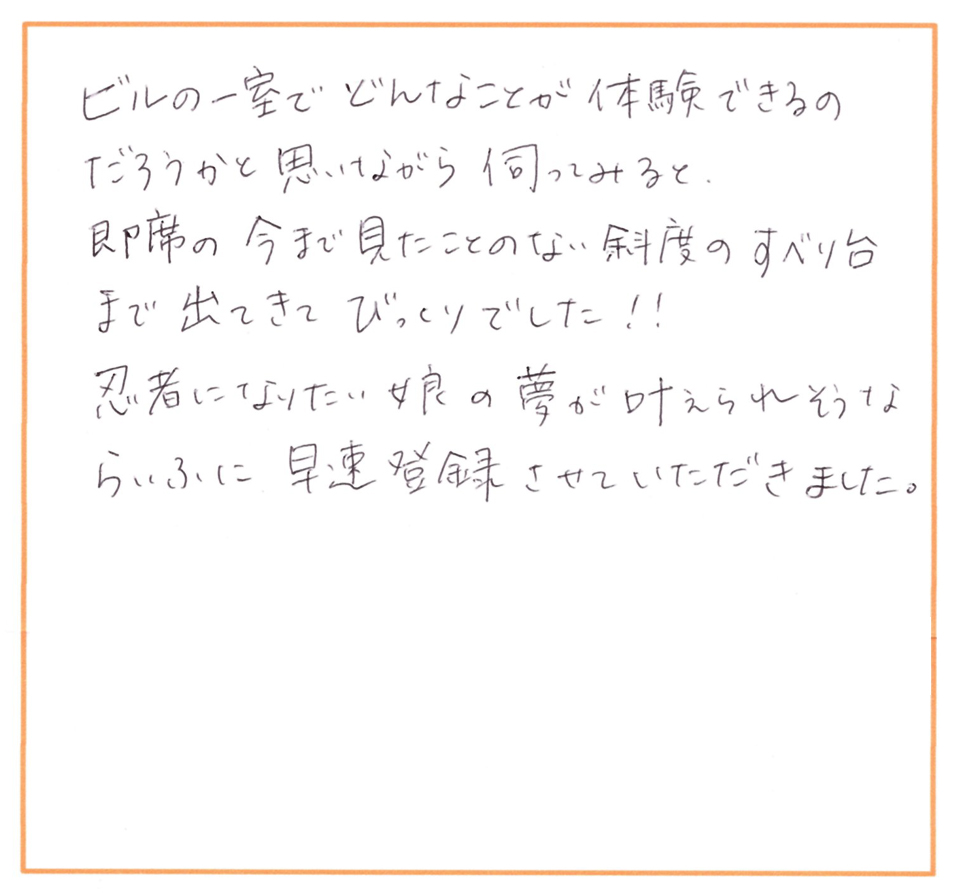 ビルの一室でどんなことが体験できるの
だろうかと思いながら伺ってみると、
即席の今まで見たことのない斜度のすべり台
まで出てきてびっくりでした!!
忍者になりたい娘の夢が叶えられそうな
らいふに早速登録させていただきました。